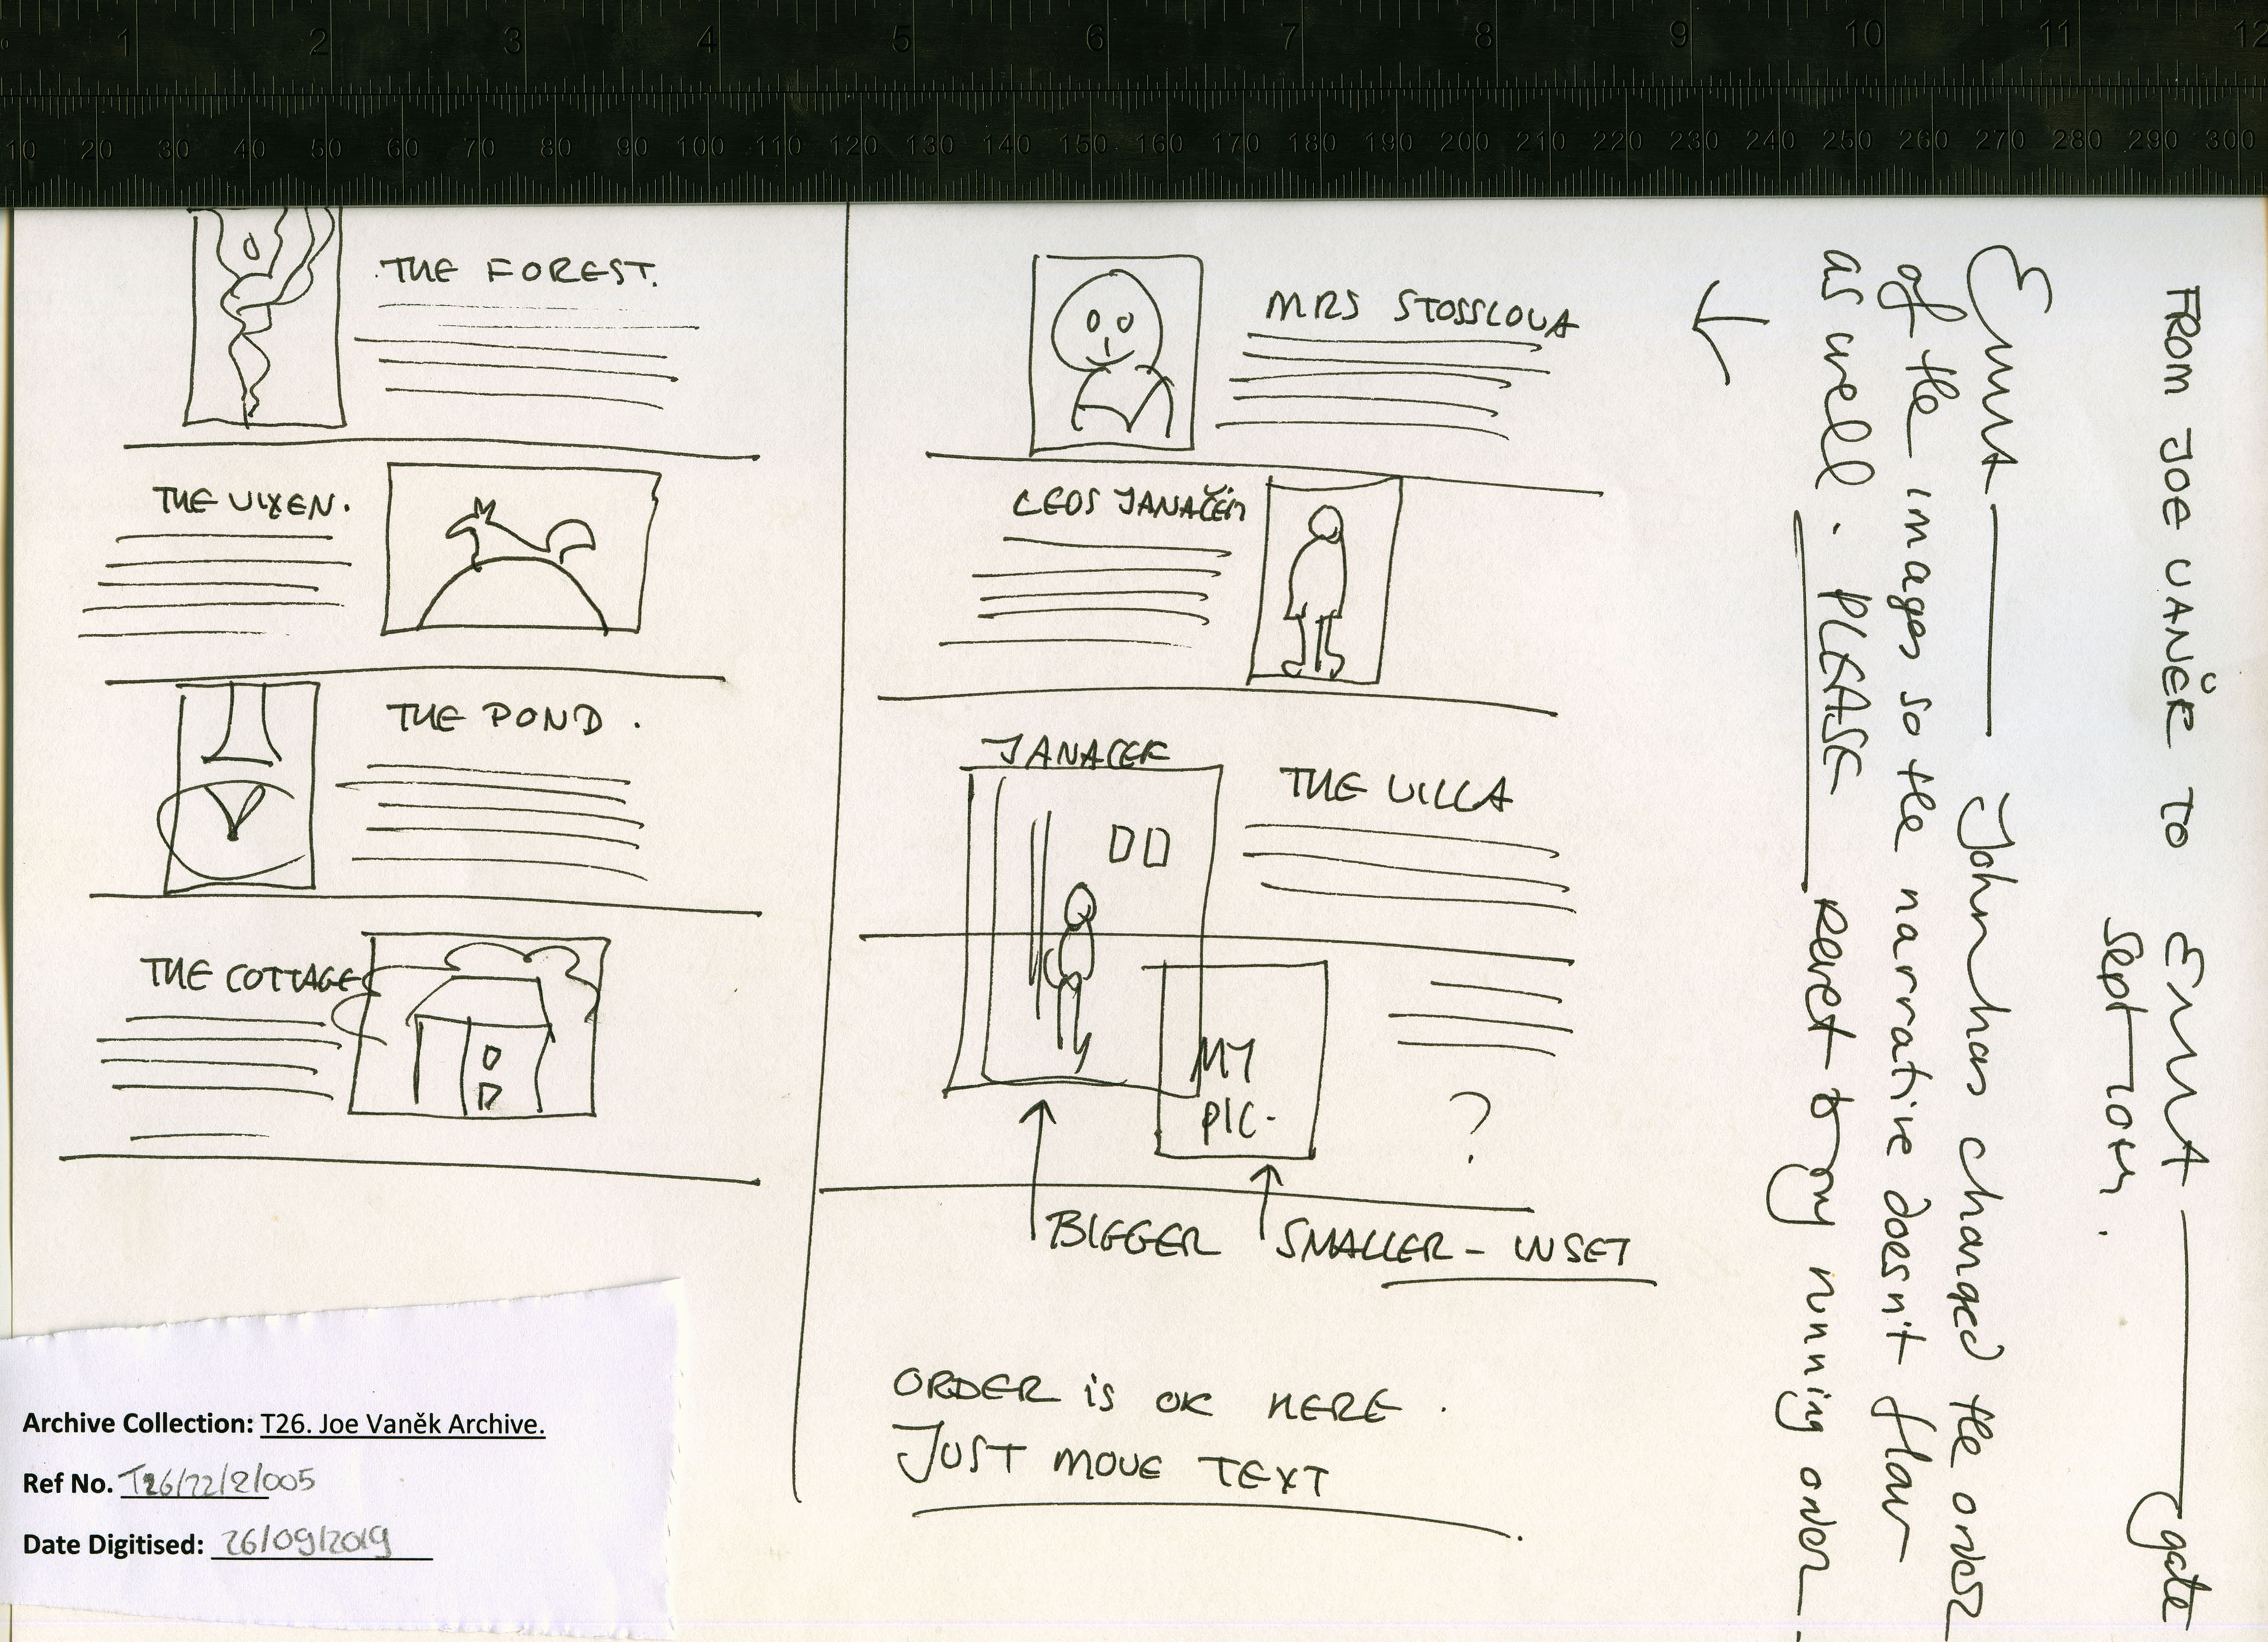 1 2 3 4 5 6 7 8 9 10 11 12
10 20 30 40 50 60 70 80 90 100 110 120 130 140 150 160 170 180 190 200 210 220 230 240 250 260 270 280 290 300
THE FOREST.
THE VIXEN.
THE POND.
THE COTTAGE
MRS STOSSLOVA
LEOS JANAČEK
JANACEK
THE VILLA
MY
PIC-
?
BIGGER
SMALLER - INSET
ORDER is OK HERE.
JUST MOVE TEXT
FROM JOE VANĚK TO EMMA — gate
Sept 10th.
EMMA — John has changed the order
of the images so the narrative doesn't flow
as well. PLEASE revert to my running order
Archive Collection: T26. Joe Vaněk Archive.
Ref No. T26/22/2/005
Date Digitised: 26/09/2019